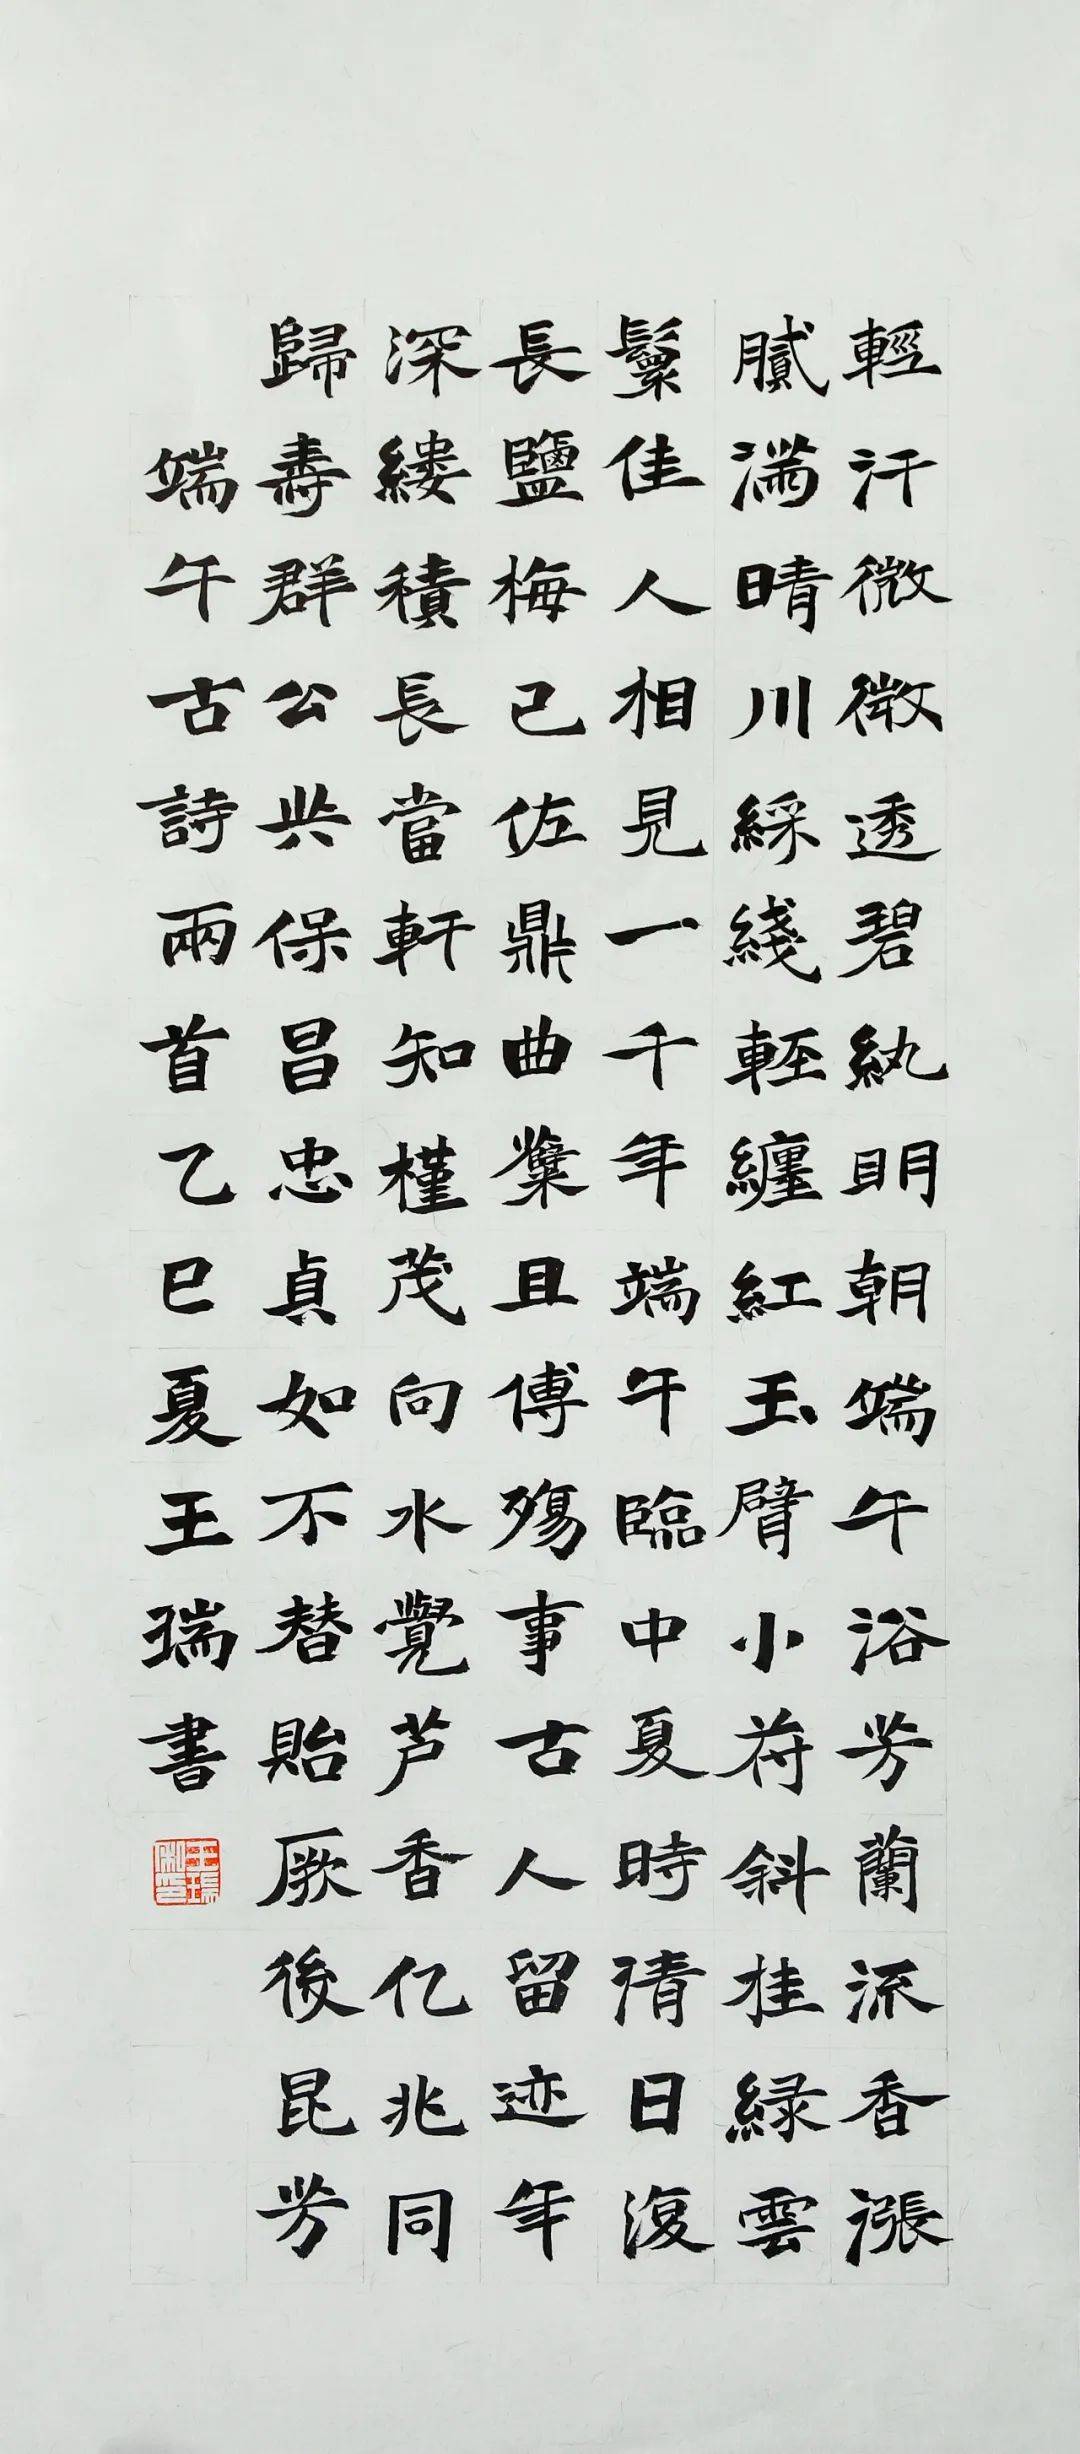 輕汗微微透碧紈明朝端午浴芳蘭流香漲
膩滿晴川綵綫輕纏紅玉臂小符斜挂綠雲
鬟佳人相見一千年端午臨中夏時清日復
長鹽梅已佐鼎曲糵且傳殤事古人留迹年
深縷積長當軒知槿茂向水覺芦香亿兆同
歸壽群公共保昌忠貞如不替貽厥後昆芳
端午古詩兩首乙巳夏王瑞書
王瑞私印